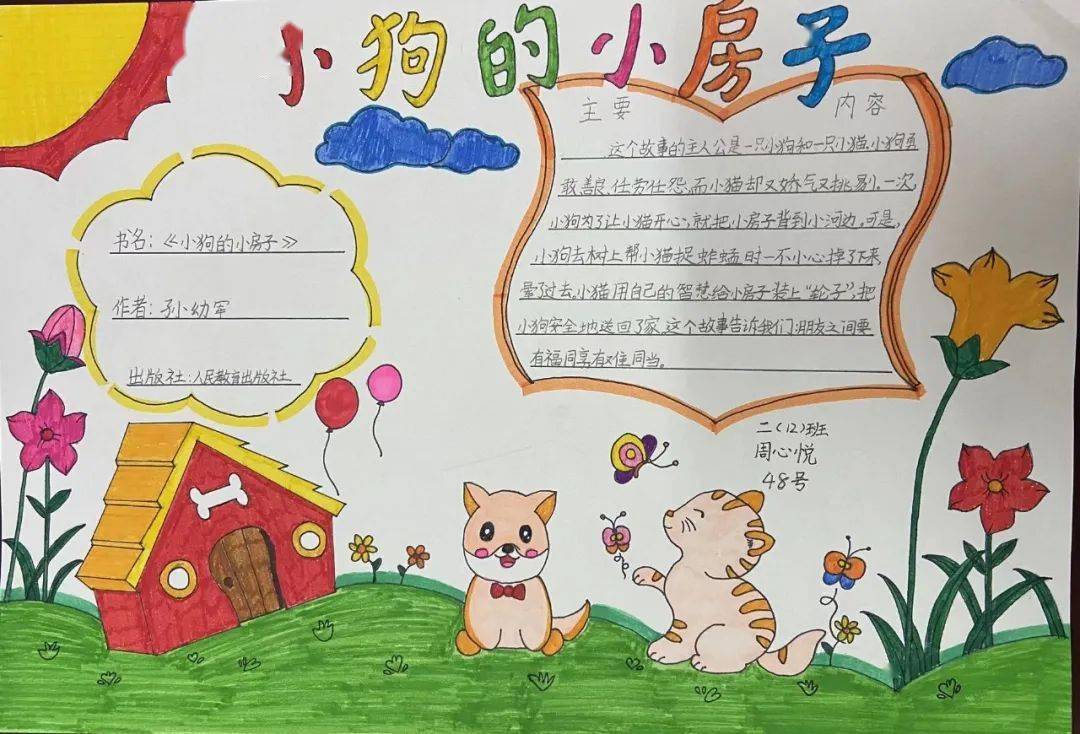 小狗的小房子
书名：《小狗的小房子》
作者：孙幼军
出版社：人民教育出版社
主要 内容
这个故事的主人公是一只小狗和一只小猫,小狗勇
敢,善良,任劳任怨,而小猫却又娇气又挑剔。一次,
小狗为了让小猫开心,就把小房子背到小河边。可是,
小狗去树上帮小猫捉蚱蜢时一不小心掉了下来
晕了过去。小猫用自己的智慧给小房子装上“轮子”,把
小狗安全地送回了家。这个故事告诉我们:朋友之间要
有福同享,有难同当。
二(12)班
周心悦
48号